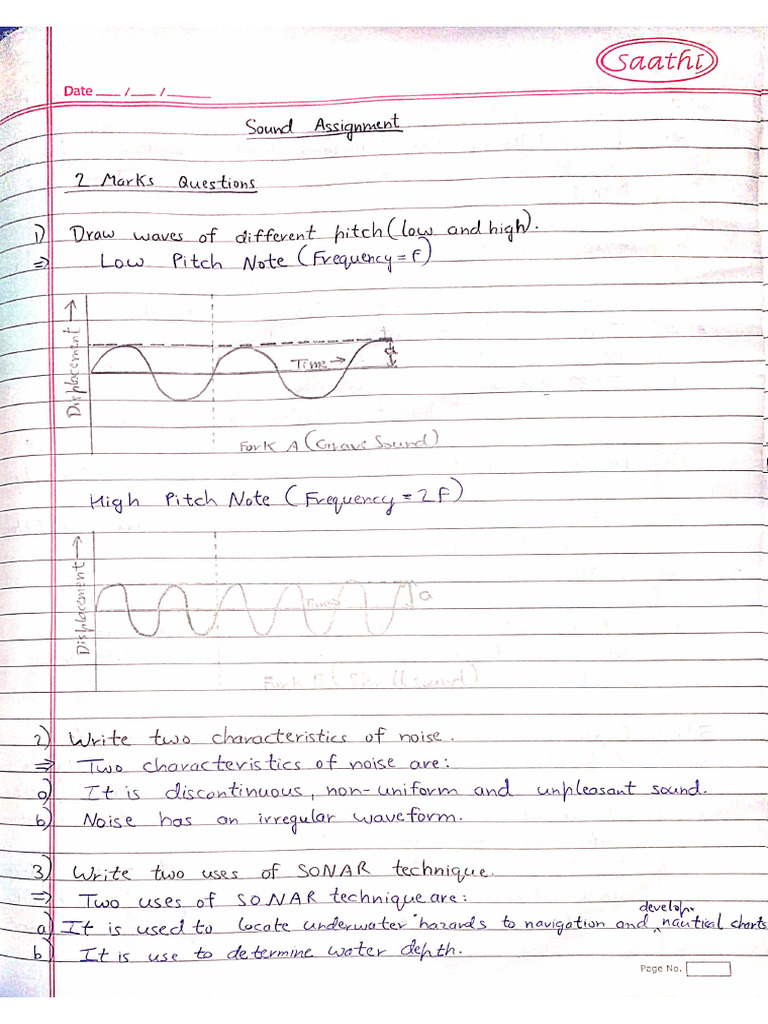 Saathi
Date ___ / ___ / ______
Sound Assignment
2 Marks Questions
1) Draw waves of different pitch (low and high).
⇒ Low Pitch Note (Frequency = F)
Displacement →
Time →
a
Fork A (Grave Sound)
High Pitch Note (Frequency = 2F)
Displacement →
Time →
a
Fork (Sound)
2) Write two characteristics of noise.
⇒ Two characteristics of noise are:
a) It is discontinuous, non-uniform and unpleasant sound.
b) Noise has an irregular waveform.
3) Write two uses of SONAR technique.
⇒ Two uses of SONAR technique are:
develop
a) It is used to locate underwater hazards to navigation and nautical charts
b) It is use to determine water depth.
Page No.